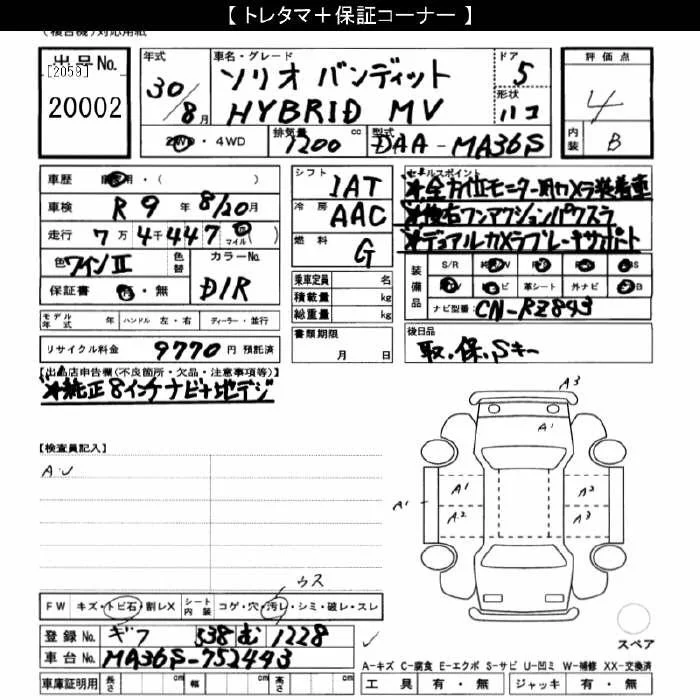 【 トレタマ＋保証コーナー 】
(複合機)対応用紙
出品No.
[2059]
20002
年式
30/8月
車名・グレード
ソリオ バンディット
HYBRID MV
ドア
5
形状
ハコ
評価点
4
内装
B
2WD・4WD
排気量
1200 cc
型式
DAA-MA36S
車歴
・( )
車検
R 9年 8/20月
走行
7万4千447 マイル
色
ワインⅡ
色替
カラーNo.
D1R
保証書
有・無
モデル年式 年
ハンドル 左・右
ディーラー・並行
リサイクル料金
9770円 預託済
シフト
1AT
冷房
AAC
燃料
G
乗車定員 名
積載量 kg
総重量 kg
書類期限
月 日
セールスポイント
※全方位モニター用カメラ装着車
※後右ワンアクションパワスラ
※デュアルカメラブレーキサポート
装備品
S/R
革シート
外ナビ
ナビ型番
CN-RZ843
後日品
取.保.Sキー
【出品店申告欄(不良箇所・欠品・注意事項等)】
※純正8インチナビ+地デジ
【検査員記入】
A.U
A3
A1
A1
A1
A2
A2
A3
ウス
FW
キズ・トビ石・割レX
シート内装
コゲ・穴・汚レ・シミ・破レ・スレ
登録No.
ギフ 538 む 1228
車台No.
MA36S-752443
車庫証明用
長さ cm
幅 cm
高さ cm
スペア
A-キズ C-腐食 E-エクボ S-サビ U-凹ミ W-補修 XX-交換済
工具 有・無
ジャッキ 有・無